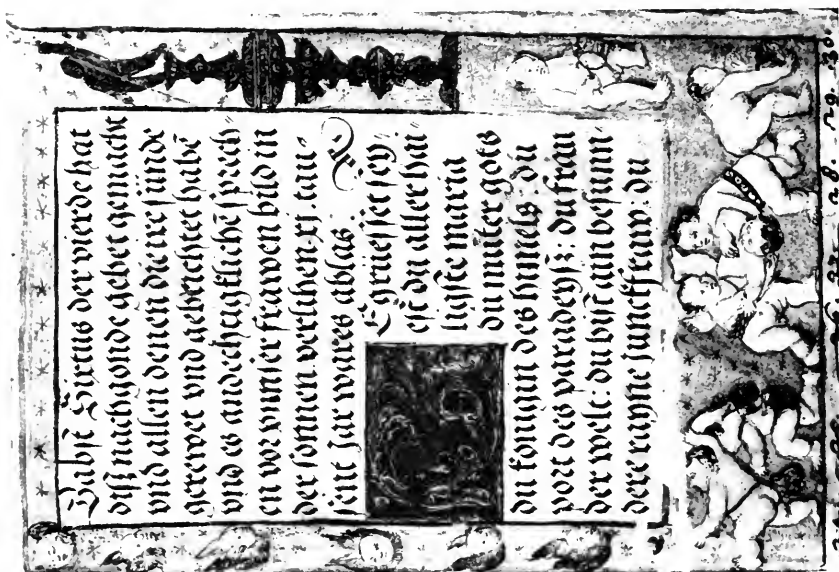 Babst Sixtus der vierde hat
diß nachgonde gebet gemacht
vnd allen denen die ire sünde
gerewet vnd gebeichtet habē
vnd es andechtigklichē sprech-
en vor vnnser frawen bild in
der sonnen. verlihen. xj. tau-
sent Jar wares ablas
Egrüesset sey-
est du aller hai-
ligste maria
du müter gots
du künigin des himels: du
port des paradeyß: du frau
der welt: du bist ain besunn-
dere rayne Junckfraw: du